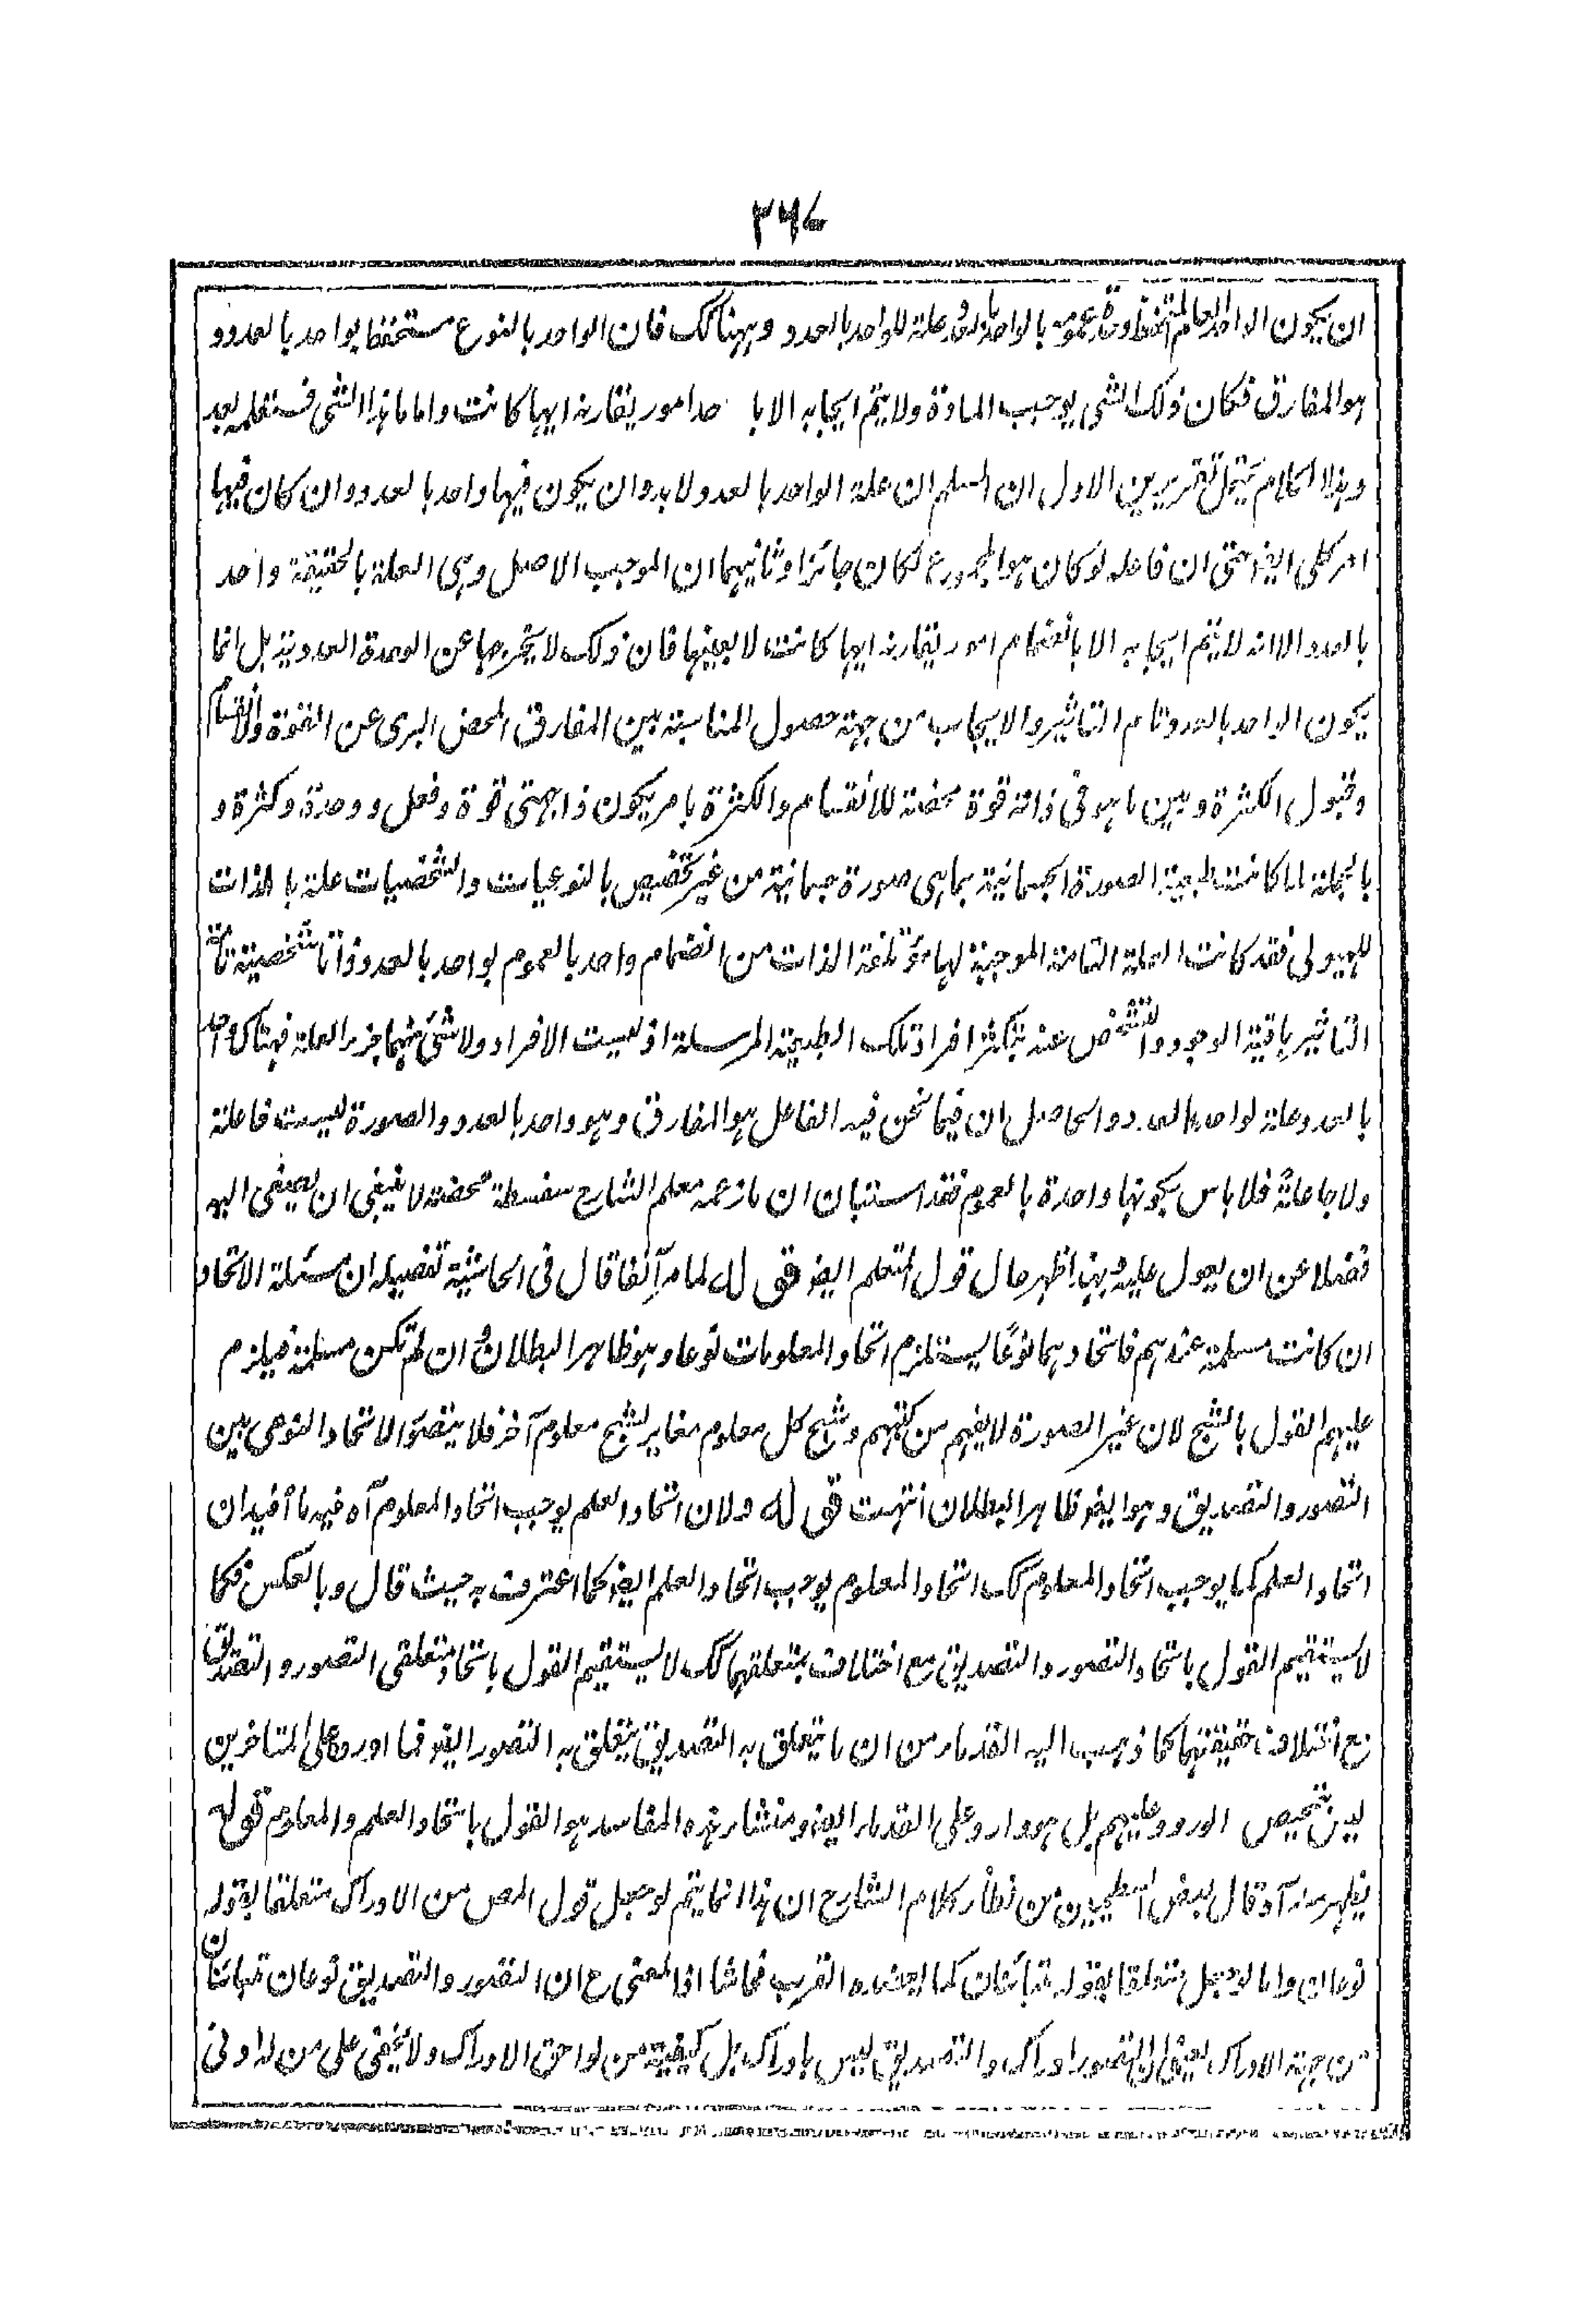 ۳۶۷
ان يكون الواحد العام المستحفظ وحدة عمومه بالواحد بالعدد علة للواحد بالعدد وههنا كك فان الواحد بالنوع مستحفظ بواحد بالعدد و
هو المفارق فكان ذلك الشي يوجب المادة ولا يتم ايجابه الا با حد امور يقارنه ايها كانت واما ما هذا الشي فستعلمه بعد
وهذا الكلام يحتمل تقريرين الاول ان المسلم ان علة الواحد بالعدد لابد وان يكون فيها واحد بالعدد وان كان فيها
امر كلي ايضا حتى ان فاعله لو كان هو المجموع لكان جائزا وثانيهما ان الموجب الاصل وهي العلة بالحقيقة واحد
بالعدد الا انه لا يتم ايجابه الا بانضمام امور يقارنه ايها كانت لا بعينها فان ذلك لا يخرجها عن الوحدة العددية بل انما
يكون الواحد بالعدد تام التاثير والايجاب من جهة حصول المناسبة بين المفارق المحض البري عن القوة والانقسام
وقبول الكثرة وبين ما هو في ذاته قوة محضة للانقسام والكثرة بامر يكون ذا جهتي قوة وفعل ووحدة وكثرة و
بالجملة لما كانت طبيعة الصورة الجسمانية بما هي صورة جسمانية من غير تخصيص بالنوعيات والشخصيات علة بالذات
للهيولى فقد كانت العلة التامة الموجبة لها مؤتلفة الذات من انضمام واحد بالعموم لواحد بالعدد وذاتا شخصية تامة
التاثير باقية الوجود والتشخص عند تكثر افراد تلك الطبيعة المرسلة اذ ليست الافراد ولا شئ منهما جزء العلة فهناك واحد
بالعدد علة لواحد بالعدد والحاصل ان فيما نحن فيه الفاعل هو المفارق وهو واحد بالعدد والصورة ليست فاعلة
ولا جاعلة فلا باس بكونها واحدة بالعموم فقد استبان ان ما زعمه معلم الشارح سفسطة محضة لا ينبغي ان يصغى اليه
فضلا عن ان يعول عليه وبهذا ظهر حال قول المتعلم ايضا قوله لما مر آنفا قال في الحاشية تفصيله ان مسئلة الاتحاد
ان كانت مسلمة عندهم فاتحادهما نوعًا يستلزم اتحاد المعلومات نوعا وهو ظاهر البطلان وان لم تكن مسلمة فيلزم
عليهم القول بالشبح لان غير الصورة لا يفهم من كتبهم وشبح كل معلوم مغاير لشبح معلوم آخر فلا يتصور الاتحاد النوعي بين
التصور والتصديق وهو ايضا ظاهر البطلان انتهت قوله ولان اتحاد العلم يوجب اتحاد المعلوم آه فيه ما افيد ان
اتحاد العلم كما يوجب اتحاد المعلوم كك اتحاد المعلوم يوجب اتحاد العلم ايضا كما اعترفت به حيث قال وبالعكس فكما
لا يستقيم القول باتحاد التصور والتصديق مع اختلاف متعلقهما كك لا يستقيم القول باتحاد متعلقي التصور والتصديق
مع اختلاف حقيقتهما كما ذهب اليه القدماء من ان ما يتعلق به التصديق يتعلق به التصور ايضا فما اورد على المتاخرين
ليس تخصيص الورود عليهم بل هو وارد على القدماء ايضا ومنشاء هذه المفاسد هو القول باتحاد العلم والمعلوم قوله
فيظهر منه آه قال بعض من نظار كلام الشارح ان هذا انما يتم لو جعل قول المص من الادراك متعلقا بقوله
نوعان واما لو جعل متعلقا بقوله متبائنان كما يعضده القرب فحاشا اذ المعنى ح ان التصور والتصديق نوعان متبائنان
من جهة الادراك يعني ان التصور ادراك والتصديق ليس بادراك بل كيفية من لواحق الادراك ولا يخفى على من له ادنى